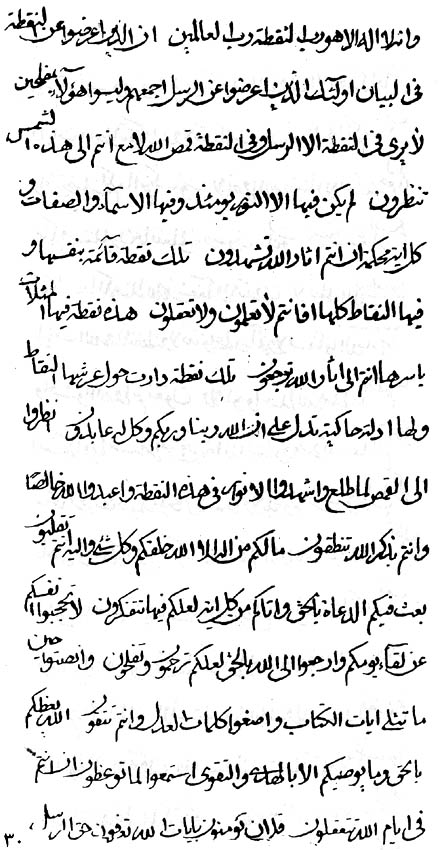 وانه لا اله الا هو رب النقطة رب العالمين ان الذين اعرضوا عن النقطة
فى البيان اولئك الذين اعرضوا عن الرسل اجمعهم وليسوا هؤلاء بمفلحين
لا يرى فى النقطة الا الرسل وفى النقطة قمص الله لامع انتم الى هذه الشمس
تنظرون لم يكن فيها الا النور يومئذ وفيها الاسماء والصفات و
كل اية محكمة ان انتم اثار الله تشهدون تلك نقطة قائمة بنفسها و
فيها النقاط كلها افانتم لا تعلمون ولا تعقلون هذه نقطة فيها المثلات
باسرها انتم الى اثار الله ترجعون تلك نقطة دارت حول عرشها النقاط
ولها ادلة حاكية تدل على ان الله ربنا وربكم وكل له عابدون انظروا
الى القمص لما طلع واشهدوا الانوار فى هذه النقطة واعبدوا الله خالصا
وانتم بذكر الله تنطقون ما لكم من اله الا الله خلقكم وكل شئ واليه انتم تقلبون
بعث فيكم الدعاة بالحق واتاكم من كل اية لعلكم فيها تتفكرون لا تحجبوا انفسكم
عن لقاء يومكم وارجعوا الى الله بالحق لعلكم ترحمون وتفلحون وانصتوا حين
ما تتلى ايات الكتاب واصغوا كلمات العدل وانتم تتقون الله يعظكم
بالحق وما يوصيكم الا بالهدى والتقوى استمعوا لما توعظون ان انتم
فى ايام الله تتعقلون قل ان تؤمنون بايات الله توفون حق الرسل
٣٠